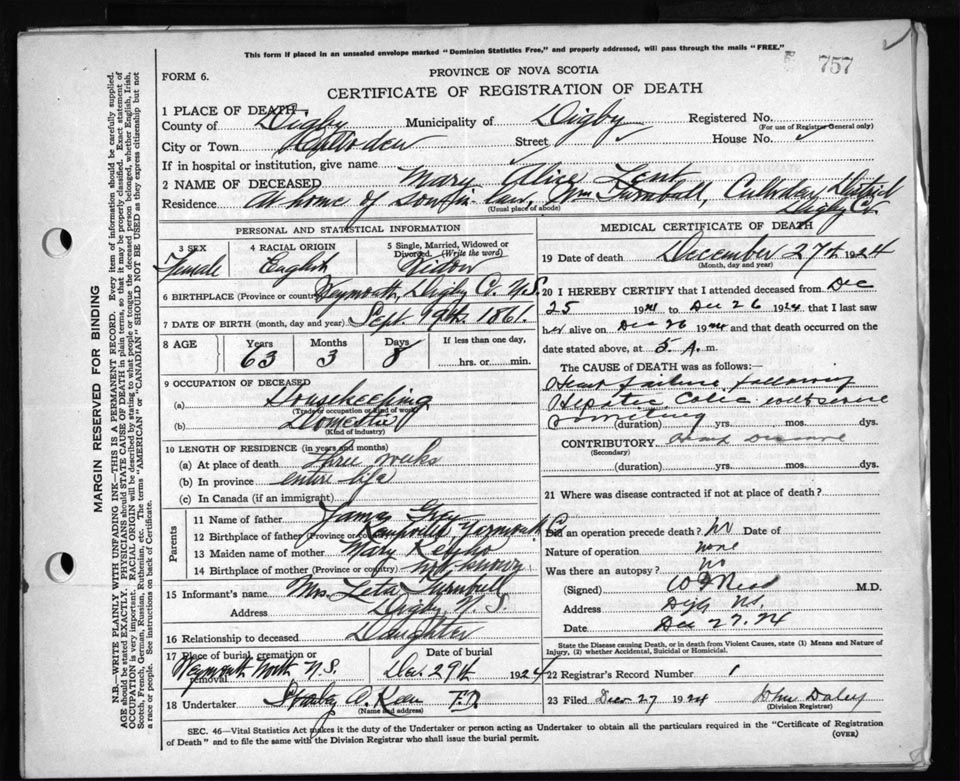 This form if placed in an unsealed envelope marked "Dominion Statistics Free," and properly addressed, will pass through the mails "FREE."
757
FORM 6.
PROVINCE OF NOVA SCOTIA
CERTIFICATE OF REGISTRATION OF DEATH
1 PLACE OF DEATH
County of Digby Municipality of Digby Registered No.
(For use of Registrar General only)
City or Town Street House No.
If in hospital or institution, give name
2 NAME OF DECEASED Mary Alice Lent
Residence At home of Son-in-law, Wm Turnbull, District
(Usual place of abode) Digby Co.
PERSONAL AND STATISTICAL INFORMATION
3 SEX 4 RACIAL ORIGIN 5 Single, Married, Widowed or Divorced. (Write the word)
Female English Widow
6 BIRTHPLACE (Province or country) Weymouth, Digby Co. N.S.
7 DATE OF BIRTH (month, day and year) Sept. 19th. 1861.
8 AGE Years Months Days If less than one day,
63 3 8 hrs. or min.
9 OCCUPATION OF DECEASED
(a) Housekeeping
(Trade or occupation or kind of work)
(b) Domestic
(Kind of industry)
10 LENGTH OF RESIDENCE (in years and months)
(a) At place of death three weeks
(b) In province entire life
(c) In Canada (if an immigrant)
Parents
11 Name of father James Grey
12 Birthplace of father (Province or country) Yarmouth Co
13 Maiden name of mother Mary
14 Birthplace of mother (Province or country)
15 Informant's name Mrs. Leta Turnbull
Address Digby, N.S.
16 Relationship to deceased Daughter
17 Place of burial, cremation or removal Date of burial
Weymouth North N.S. Dec 29th 1924
18 Undertaker F.D.
(Name and address)
MEDICAL CERTIFICATE OF DEATH
19 Date of death December 27th 1924
(Month, day and year)
20 I HEREBY CERTIFY that I attended deceased from Dec
25 1924 to Dec 26 1924 that I last saw
her alive on Dec 26 1924 and that death occurred on the
date stated above, at 5 A. m.
The CAUSE of DEATH was as follows:
Heart failure following
Hepatic Colic with severe
vomiting
(duration) yrs. mos. dys.
CONTRIBUTORY
(Secondary)
(duration) yrs. mos. dys.
21 Where was disease contracted if not at place of death?
Did an operation precede death? No Date of
Nature of operation none
Was there an autopsy? no
(Signed) M.D.
Address Digby N.S.
Date Dec 27.24
State the Disease causing Death, or in death from Violent Causes, state (1) Means and Nature of Injury, (2) whether Accidental, Suicidal or Homicidal.
22 Registrar's Record Number 1
23 Filed Dec 27 1924 John Daley
(Division Registrar)
SEC. 46—Vital Statistics Act makes it the duty of the Undertaker or person acting as Undertaker to obtain all the particulars required in the "Certificate of Registration
of Death" and to file the same with the Division Registrar who shall issue the burial permit.
(OVER)
MARGIN RESERVED FOR BINDING
N.B.—WRITE PLAINLY WITH UNFADING INK—THIS IS A PERMANENT RECORD. Every item of information should be carefully supplied.
AGE should be stated EXACTLY. PHYSICIANS should STATE CAUSE OF DEATH in plain terms, so that it may be properly classified. Exact statement of
OCCUPATION is very important. RACIAL ORIGIN will be described by stating to what people or tongue the deceased person belonged, whether English, Irish,
Scotch, French, German, Russian, Ruthenian, etc. The terms "AMERICAN" or "CANADIAN" SHOULD NOT BE USED as they express citizenship but not
a race or people. See instructions on back of Certificate.